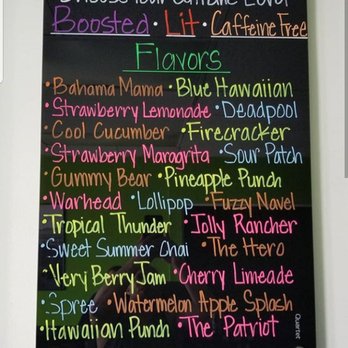 Choose Your Caffeine Level
Boosted • Lit • Caffeine Free
Flavors
• Bahama Mama • Blue Hawaiian
• Strawberry Lemonade • Deadpool
• Cool Cucumber • Firecracker
• Strawberry Maragrita • Sour Patch
• Gummy Bear • Pineapple Punch
• Warhead • Lollipop • Fuzzy Navel
• Tropical Thunder • Jolly Rancher
• Sweet Summer Chai • The Hero
• Very Berry Jam • Cherry Limeade
• Spree • Watermelon Apple Splash
• Hawaiian Punch • The Patriot
Quartet